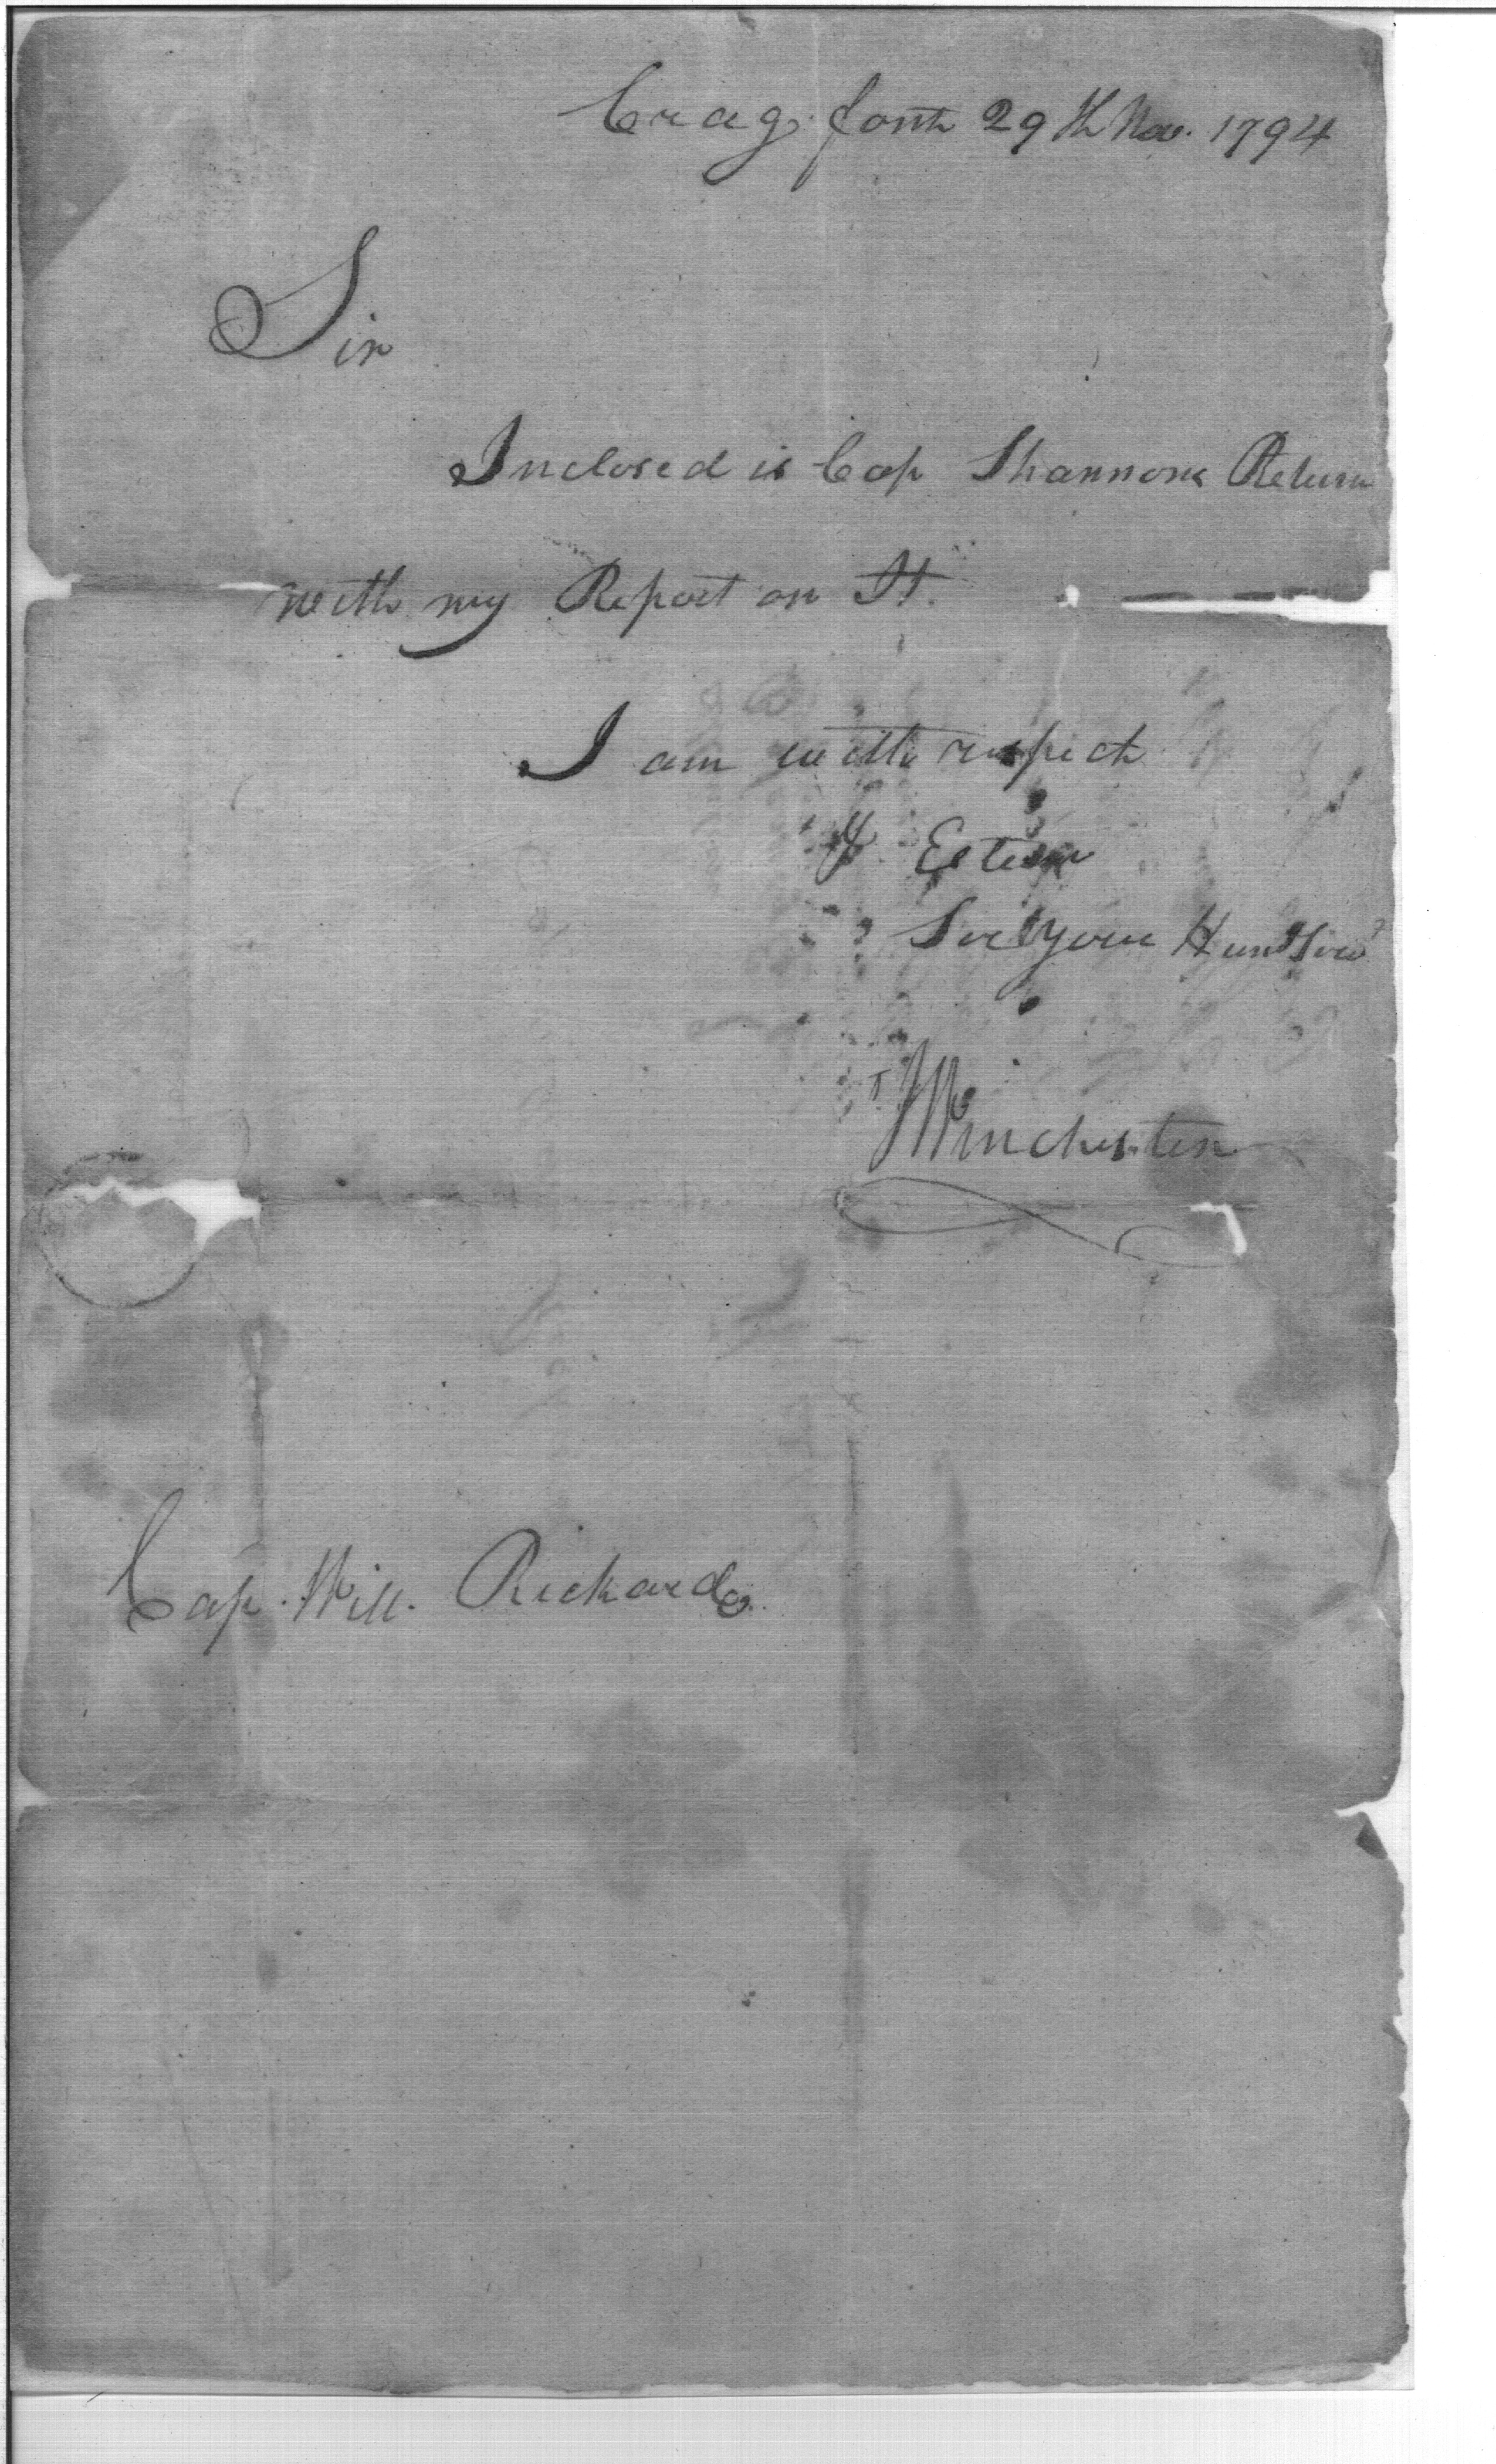 Crag font 29th Nov. 1794
Sir
Inclosed is Cap Shannons Return
with my Report on It.
I am with respect
& Esteem
Sir Your Hum Ser
J Winchester
Cap. Will. Rickard